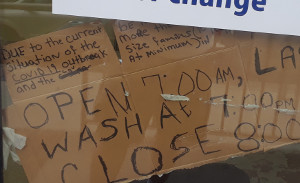 change
DUE to the current
situation of the
covid 19 outbreak
and the
more
size
At minimum
OPEN 7:00AM, LA
WASH At
CLOSE 8:00